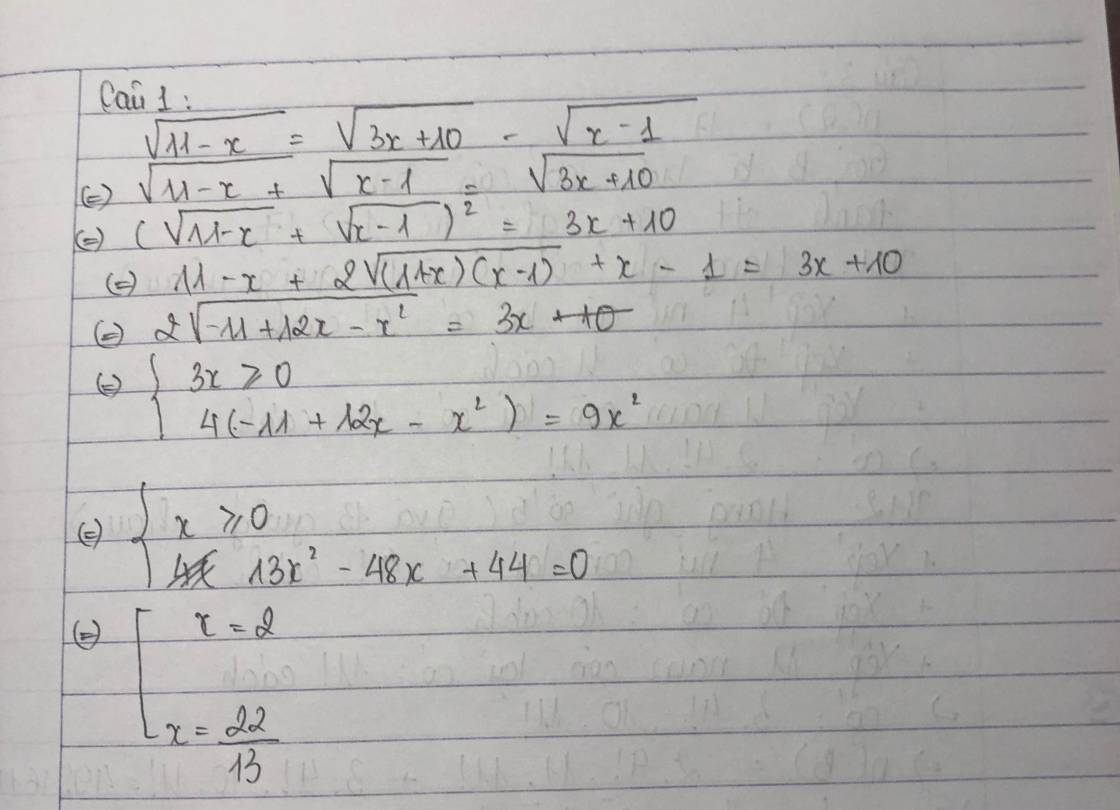 Câu 1:
√11 - x = √3x + 10 - √x - 1
(=) √11 - x + √x - 1 = √3x + 10
(=) (√11 - x + √x - 1)² = 3x + 10
(=) 11 - x + 2√(11-x)(x-1) + x - 1 = 3x + 10
(=) 2√-11 + 12x - x² = 3x + 10
(=) { 3x ⩾ 0
4(-11 + 12x - x²) = 9x²
(=) { x ⩾ 0
13x² - 48x + 44 = 0
(=) [ x = 2
x = 22/13